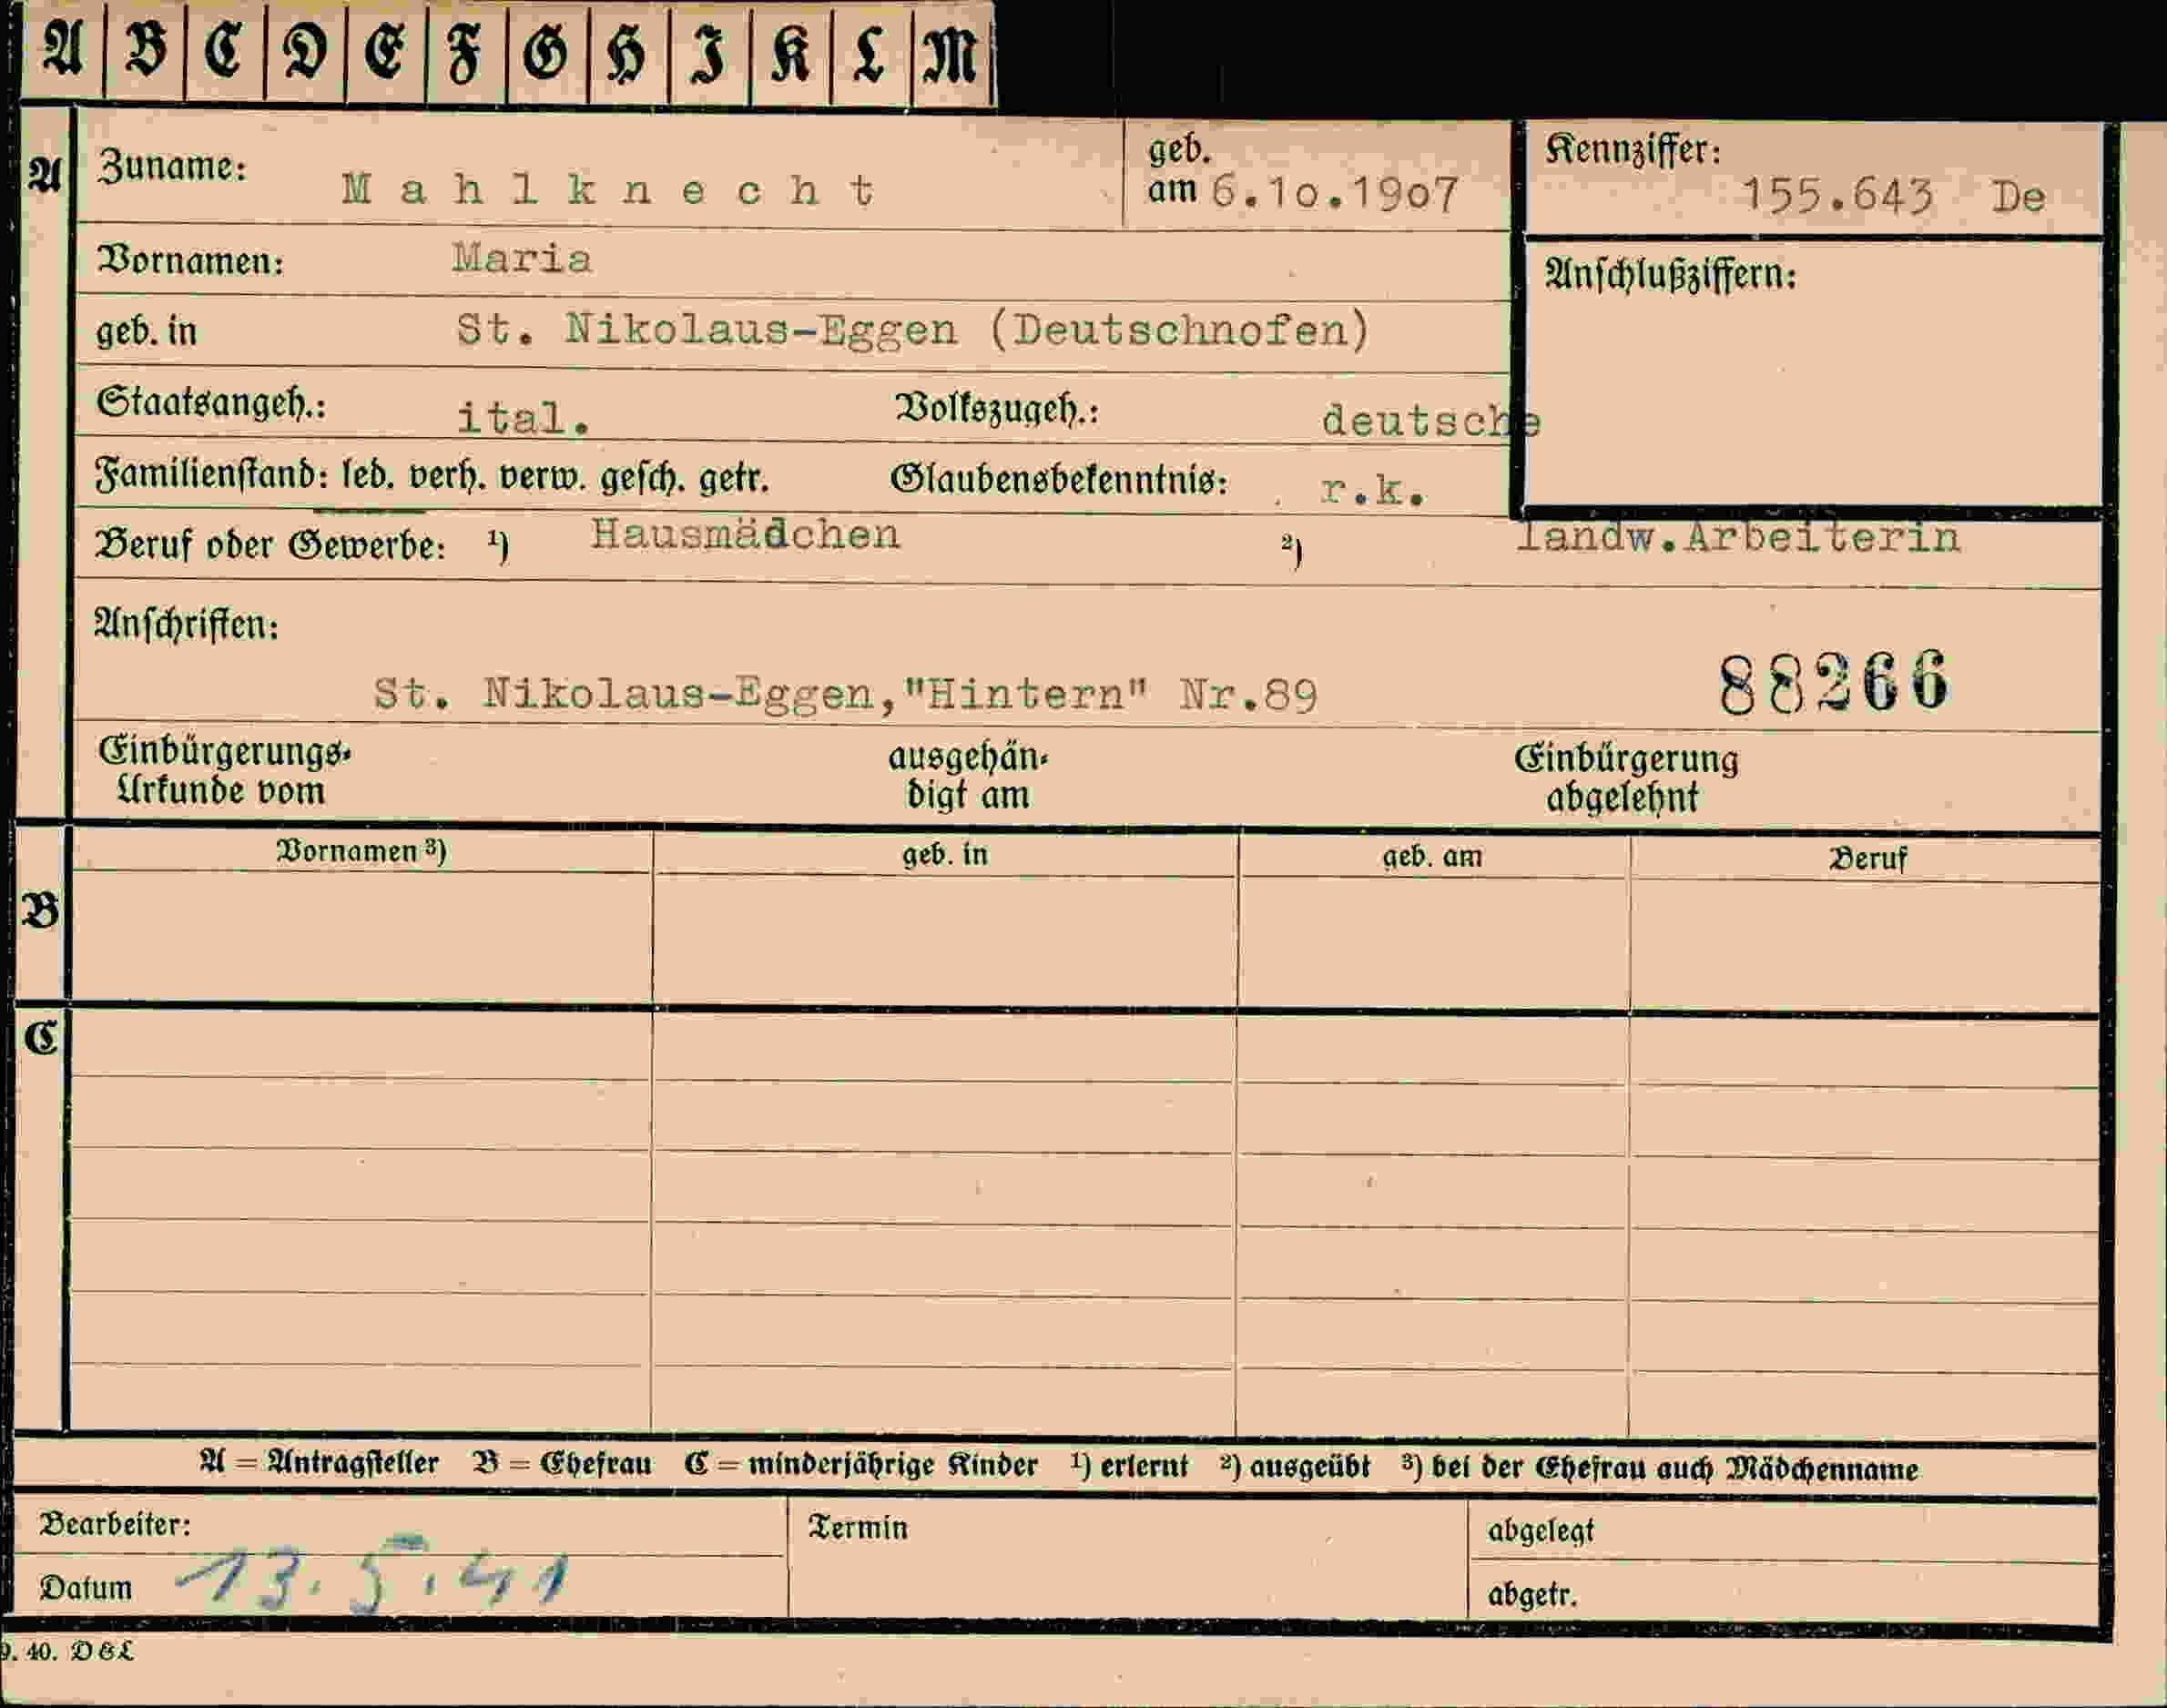 A B C D E F G H I K L M
A Zuname: Mahlknecht geb. am 6.10.1907 Kennziffer: 155.643 De
Vornamen: Maria
Anschlußziffern:
geb. in St. Nikolaus-Eggen (Deutschnofen)
Staatsangeh.: ital. Volkszugeh.: deutsche
Familienstand: led. verh. verw. gesch. getr. Glaubensbekenntnis: r.k.
Beruf oder Gewerbe: 1) Hausmädchen 2) landw.Arbeiterin
Anschriften:
St. Nikolaus-Eggen,"Hintern" Nr.89 88266
Einbürgerungs- ausgehän- Einbürgerung
Urkunde vom digt am abgelehnt
Vornamen 3) geb. in geb. am Beruf
B
C
A = Antragsteller B = Ehefrau C = minderjährige Kinder 1) erlernt 2) ausgeübt 3) bei der Ehefrau auch Mädchenname
Bearbeiter: Termin abgelegt
Datum 13.5.41 abgetr.
9. 40. D&L